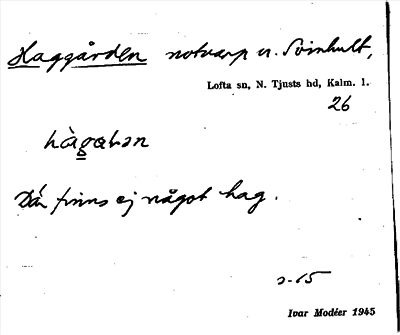 Haggården notvarp u. Svinhult,
Lofta sn, N. Tjusts hd, Kalm. l.
26
hàgalən
Där finns ej något hag.
Ivar Modéer 1945